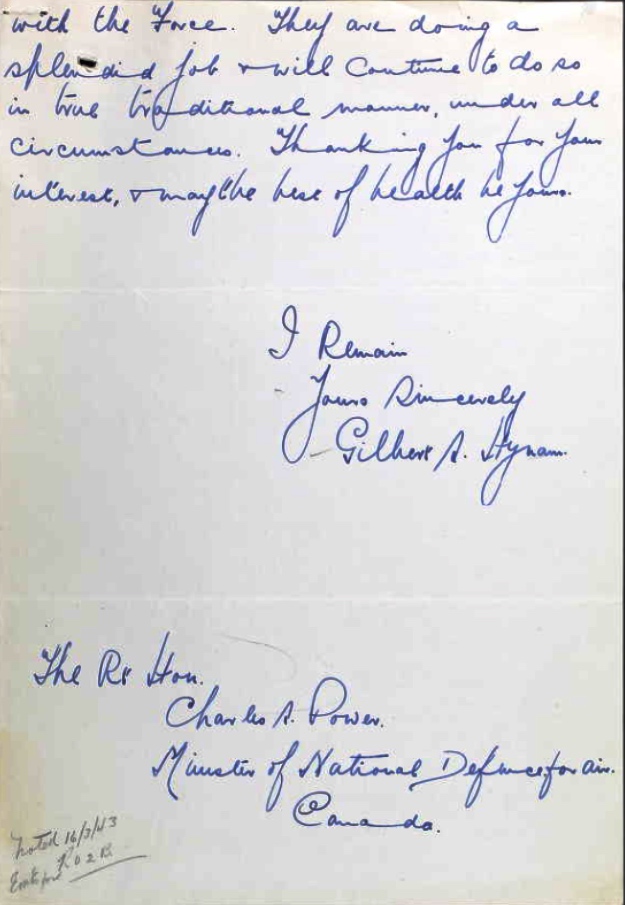 with the Force. They are doing a
splendid job & will continue to do so
in true traditional manner, under all
circumstances. Thanking you for your
interest, & may the best of health be yours.
I Remain
Yours Sincerely
Gilbert A. Hynam.
The Rt Hon.
Charles A. Power.
Minister of National Defence for air.
Canada.
Noted 16/3/43
R02B.